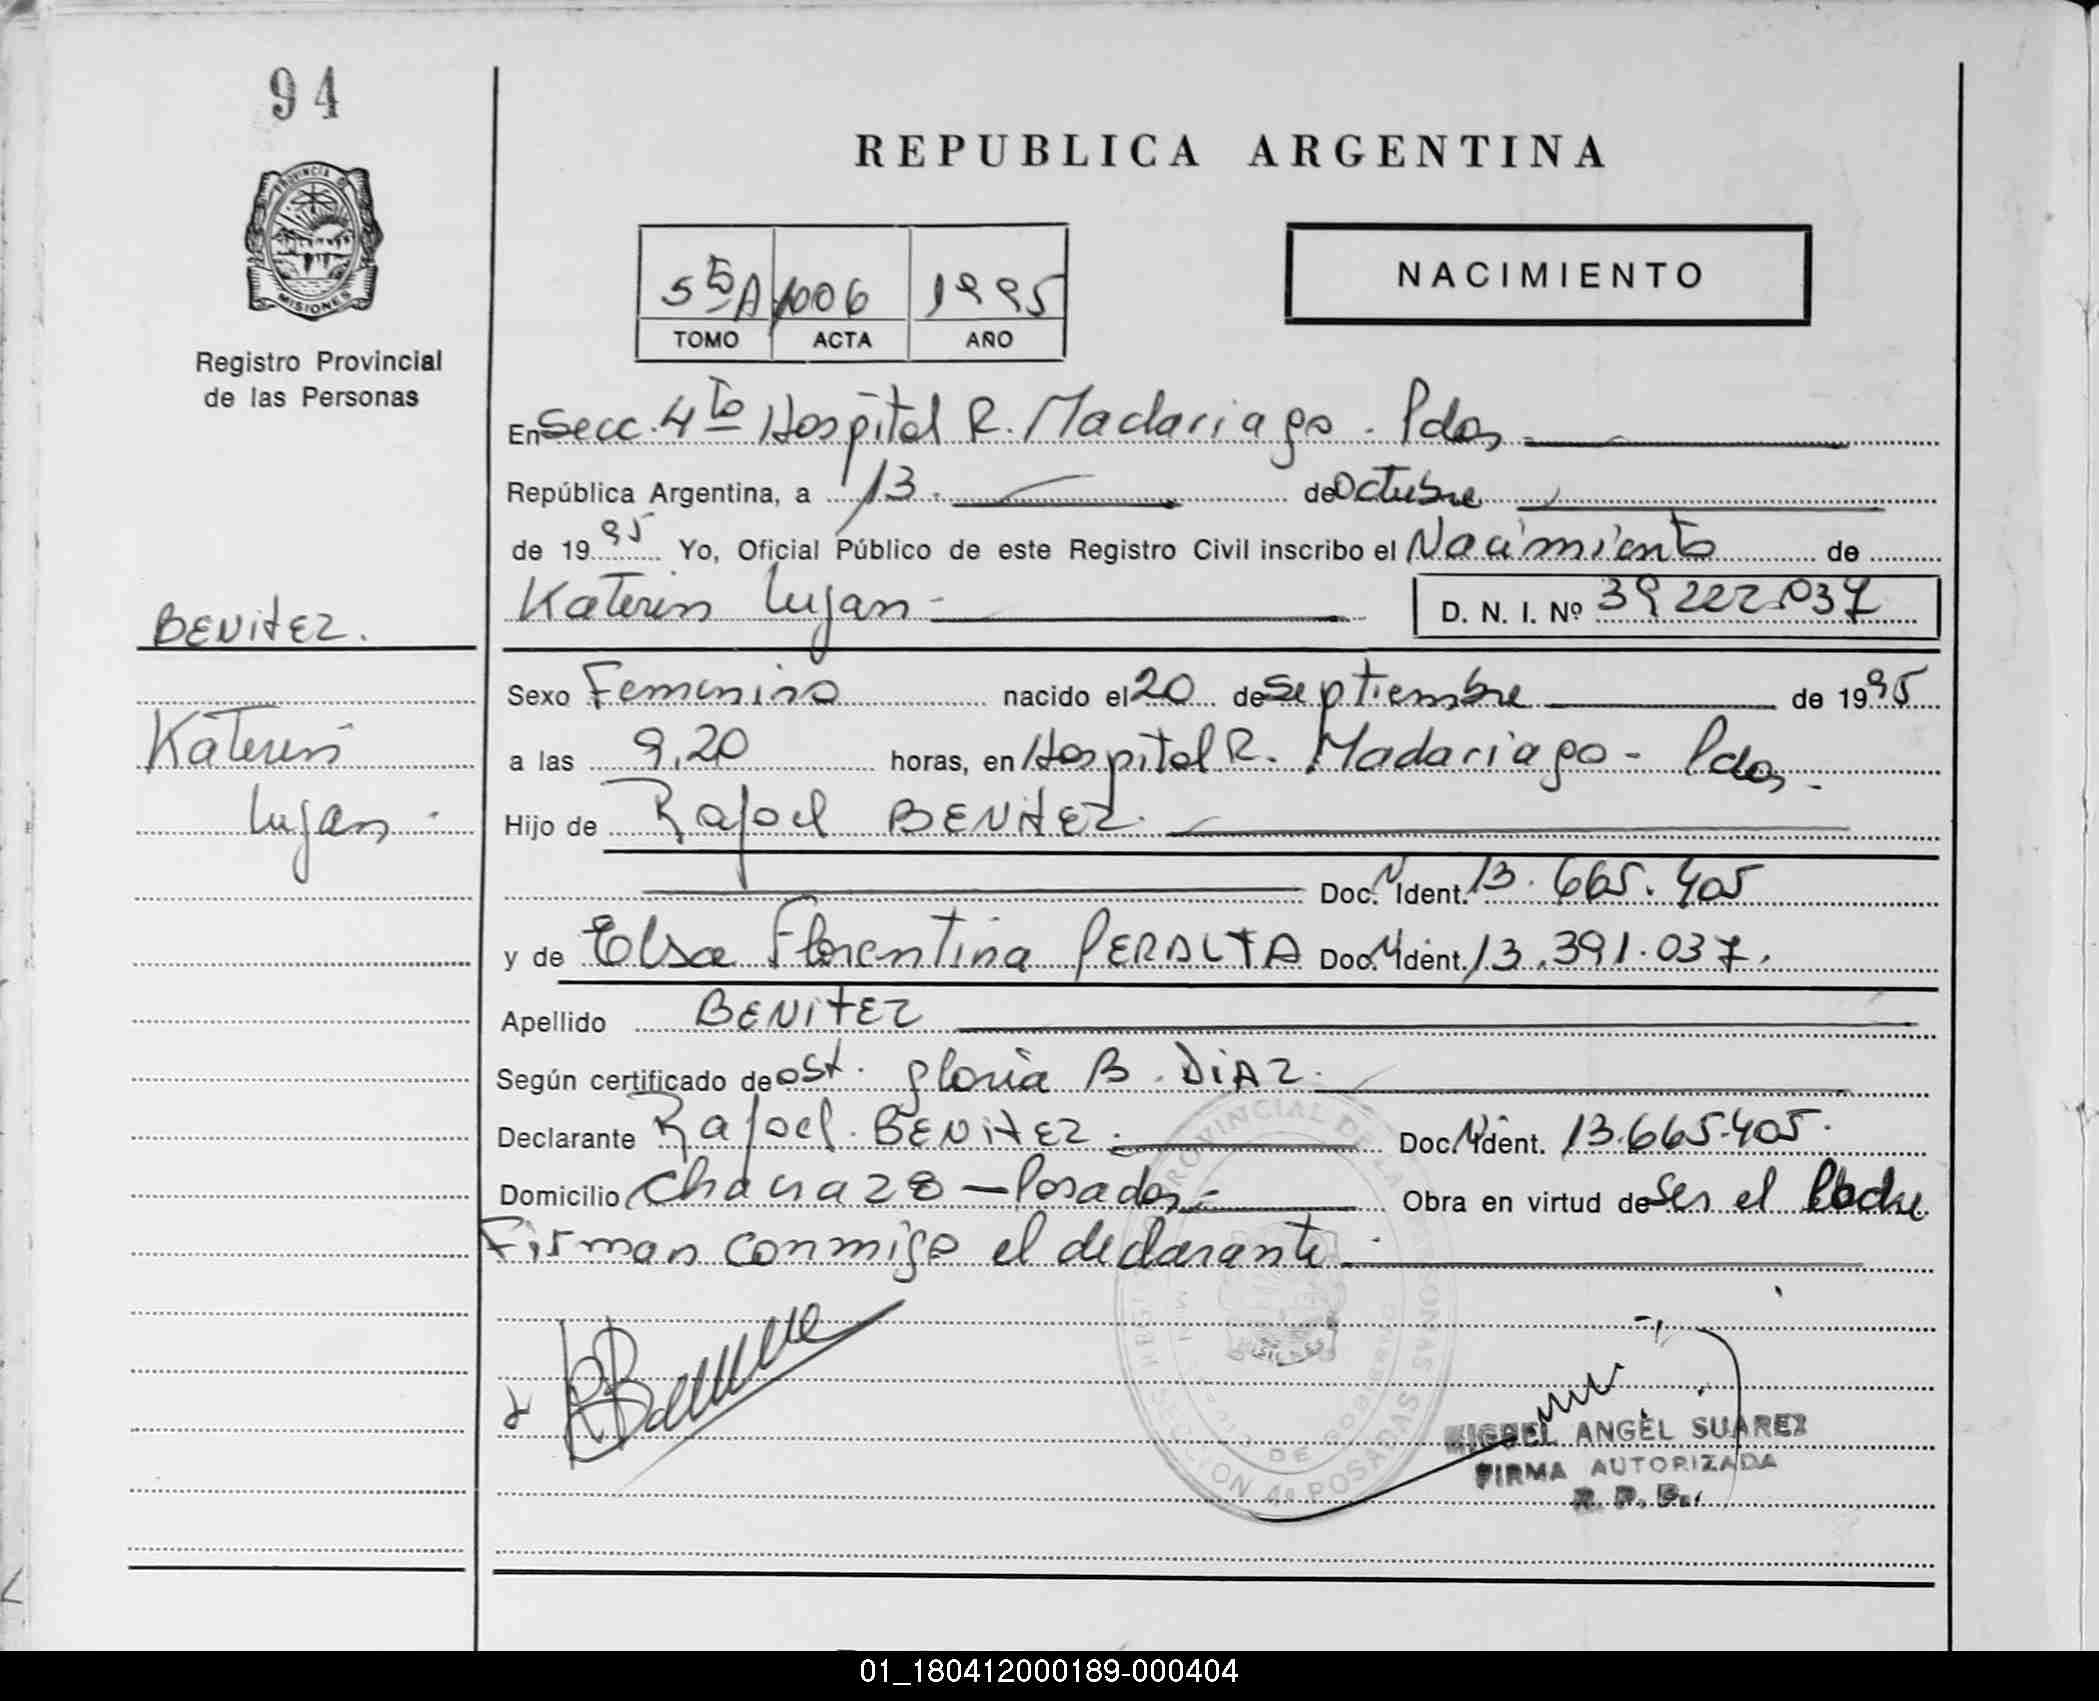 94
PROVINCIA DE
MISIONES
Registro Provincial
de las Personas
BENITEZ.
Katerin
Lujan -
REPUBLICA ARGENTINA
55A 1006 1995
TOMO ACTA AÑO
NACIMIENTO
En Secc. 4to Hospital R. Madariaga. Pdas
República Argentina, a 13. de Octubre
de 1995 Yo, Oficial Público de este Registro Civil inscribo el Nacimiento de
Katerin Lujan - D. N. I. Nº 39.222.037
Sexo Femenino nacido el 20 de Septiembre de 1995
a las 9,20 horas, en Hospital R. Madariaga - Pdas.
Hijo de Rafael BENITEZ.
Doc. N Ident. 13.665.405
y de Elsa Florentina PERALTA Doc. N Ident. 13.391.037.
Apellido BENITEZ
Según certificado de Ost. Gloria B. DIAZ.
Declarante Rafael BENITEZ. Doc. N Ident. 13.665.405.
Domicilio Chacra 28 - Posadas - Obra en virtud de Ser el Padre
Firman conmigo el declarante.
REGISTRO PROVINCIAL DE LAS PERSONAS
SECCION 4º POSADAS
MIGUEL ANGEL SUAREZ
FIRMA AUTORIZADA
R. P. P.
01_180412000189-000404